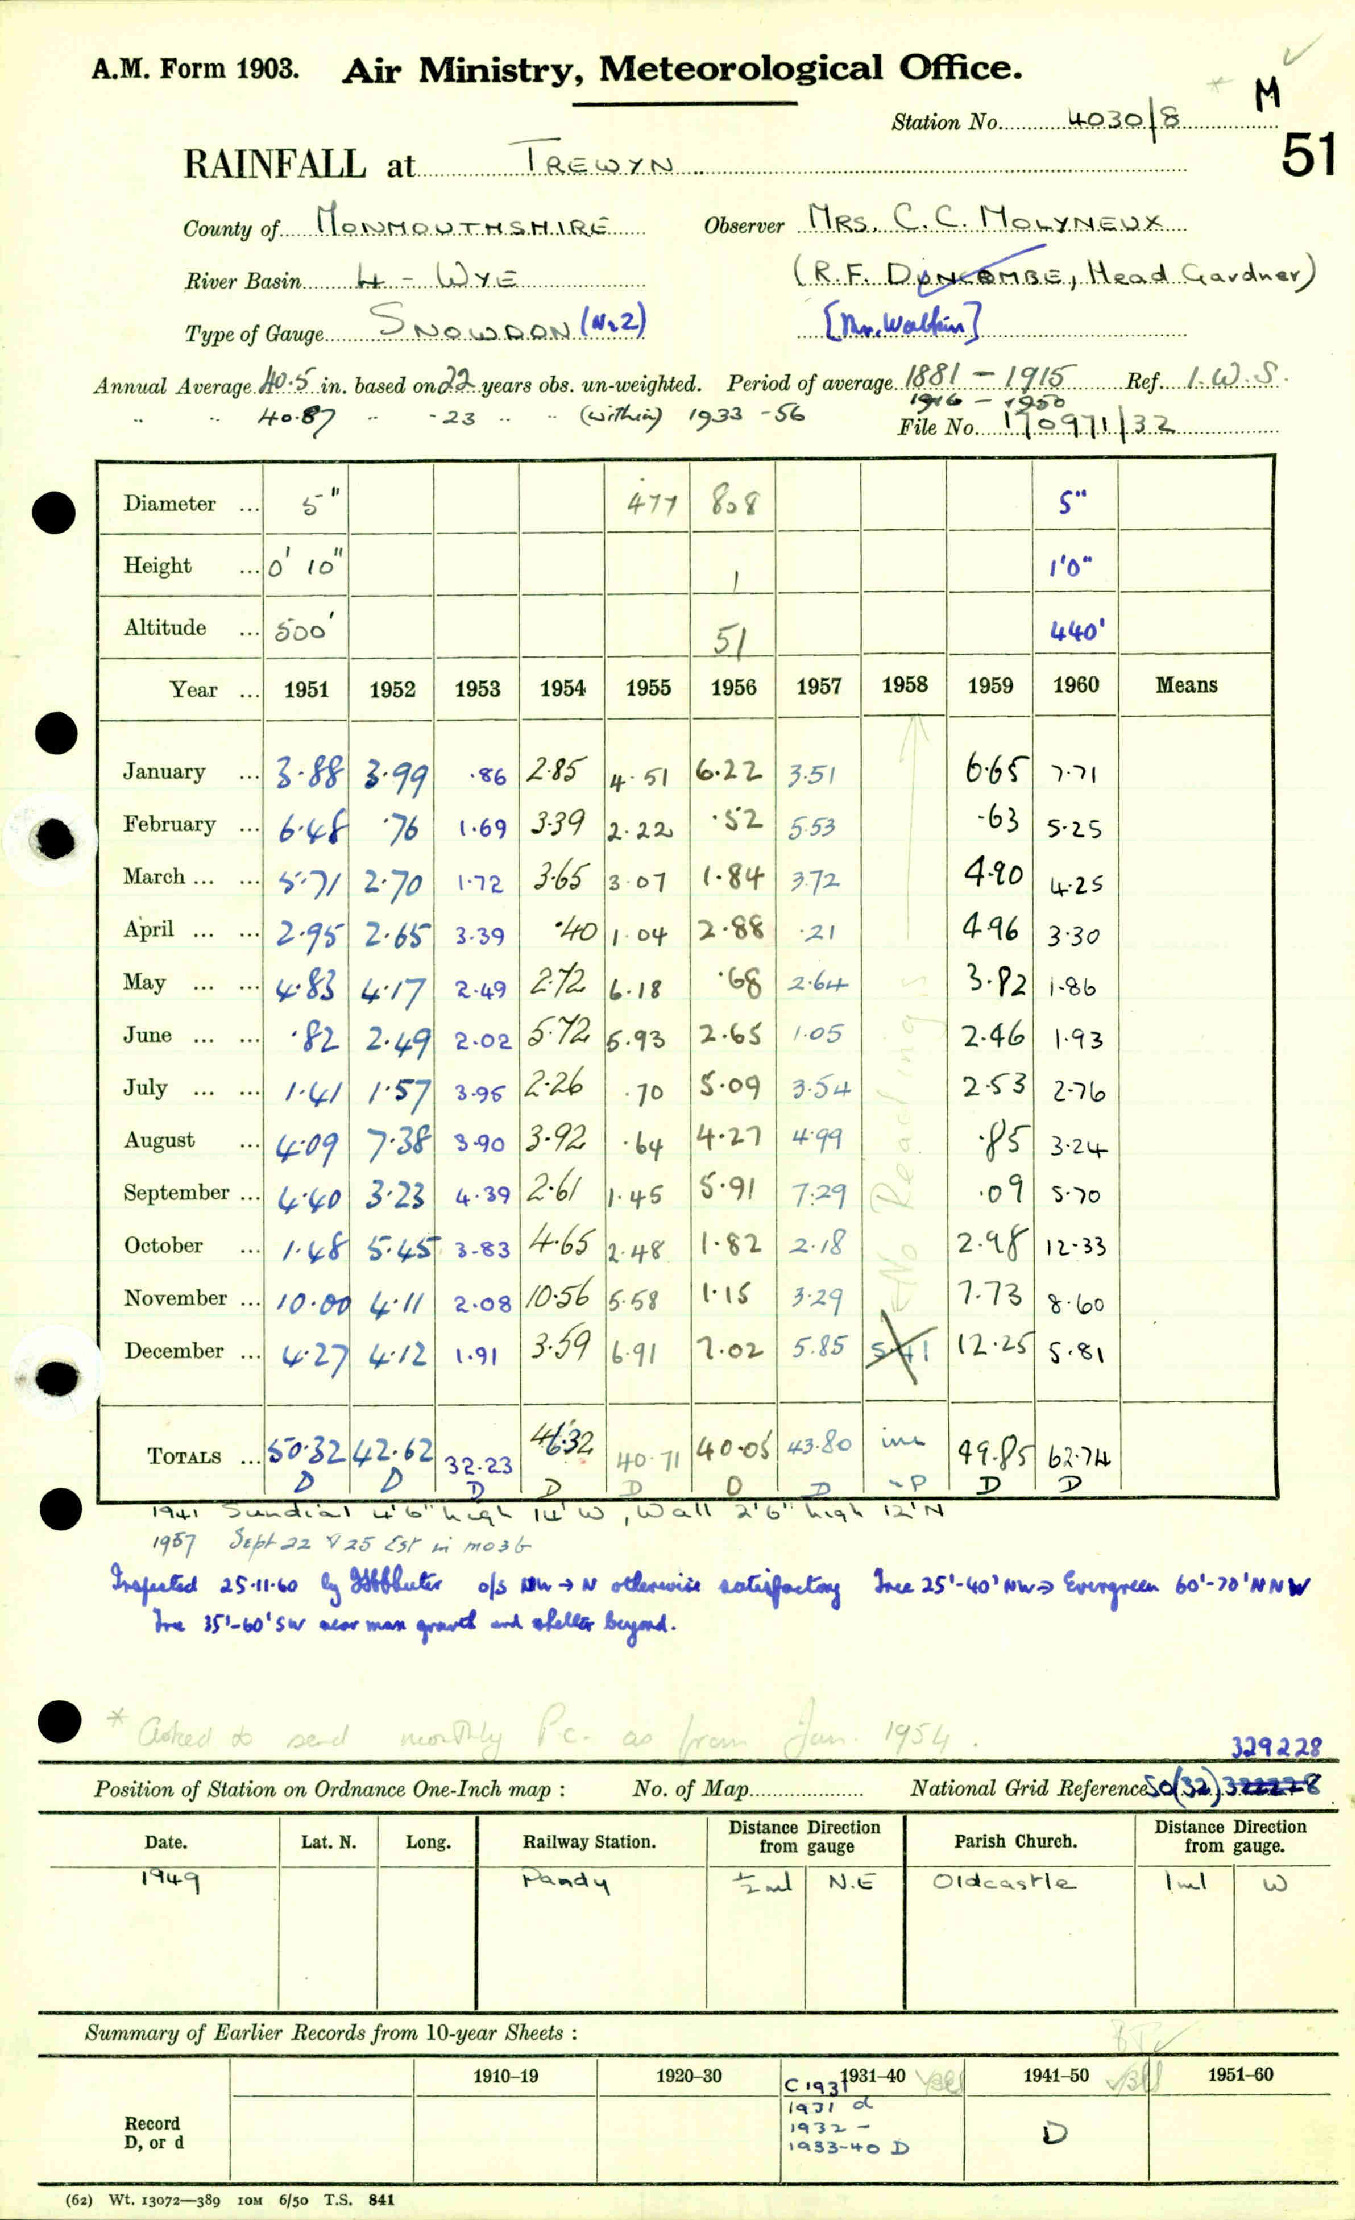 A.M. Form 1903. Air Ministry, Meteorological Office.
M
Station No. 4030/8
51
RAINFALL at TREWYN
County of MONMOUTHSHIRE Observer MRS. C. C. MOLYNEUX
River Basin 4 - WYE (R.F. DUNCOMBE, Head Gardner)
Type of Gauge SNOWDON (No 2) [Mr. Watkin]
Annual Average 40.5 in. based on 22 years obs. un-weighted. Period of average 1881 - 1915 Ref. I.W.S.
" " 40.87 " - 23 " " (within) 1933 - 56 1916 - 1950
File No. 170971/32
Diameter ... 5" 477 808 5"
Height ... 0' 10" 1 1'0"
Altitude ... 500' 51 440'
Year ... 1951 1952 1953 1954 1955 1956 1957 1958 1959 1960 Means
January ... 3.88 3.99 .86 2.85 4.51 6.22 3.51 6.65 7.71
February ... 6.48 .76 1.69 3.39 2.22 .52 5.53 .63 5.25
March ... ... 5.71 2.70 1.72 3.65 3.07 1.84 3.72 4.90 4.25
April ... ... 2.95 2.65 3.39 .40 1.04 2.88 .21 4.96 3.30
May ... ... 4.83 4.17 2.49 2.72 6.18 .68 2.64 3.82 1.86
June ... ... .82 2.49 2.02 5.72 5.93 2.65 1.05 2.46 1.93
July ... ... 1.41 1.57 3.95 2.26 .70 5.09 3.54 2.53 2.76
August ... 4.09 7.38 3.90 3.92 .64 4.27 4.99 .85 3.24
September ... 4.40 3.23 4.39 2.61 1.45 5.91 7.29 .09 5.70
October ... 1.48 5.45 3.83 4.65 2.48 1.82 2.18 2.98 12.33
November ... 10.00 4.11 2.08 10.56 5.58 1.15 3.29 7.73 8.60
December ... 4.27 4.12 1.91 3.59 6.91 7.02 5.85 5.41 12.25 5.81
No Readings
TOTALS ... 50.32 42.62 32.23 46.32 40.71 40.05 43.80 inc 49.85 62.74
D D D D D D D P D D
1941 Sundial 4'6" high 14' W, Wall 2'6" high 12' N
1957 Sept 22 & 25 Est in mo3b
Inspected 25.11.60 by o/s NW → N otherwise satisfactory Tree 25'-40' NW → Evergreen 60'-70' NNW
Tree 35'-60' SW near max growth and shelter beyond.
* Asked to send monthly P.c. as from Jan. 1954.
329228
Position of Station on Ordnance One-Inch map : No. of Map National Grid Reference SO(32)
Date. Lat. N. Long. Railway Station. Distance from Direction gauge Parish Church. Distance from Direction gauge.
1949 Pandy ½ ml N.E Oldcastle 1 ml W
Summary of Earlier Records from 10-year Sheets :
1910-19 1920-30 1931-40 1941-50 1951-60
Record D, or d
C 1931
1931 d
1932 -
1933-40 D
D
(62) Wt. 13072—389 10M 6/50 T.S. 841